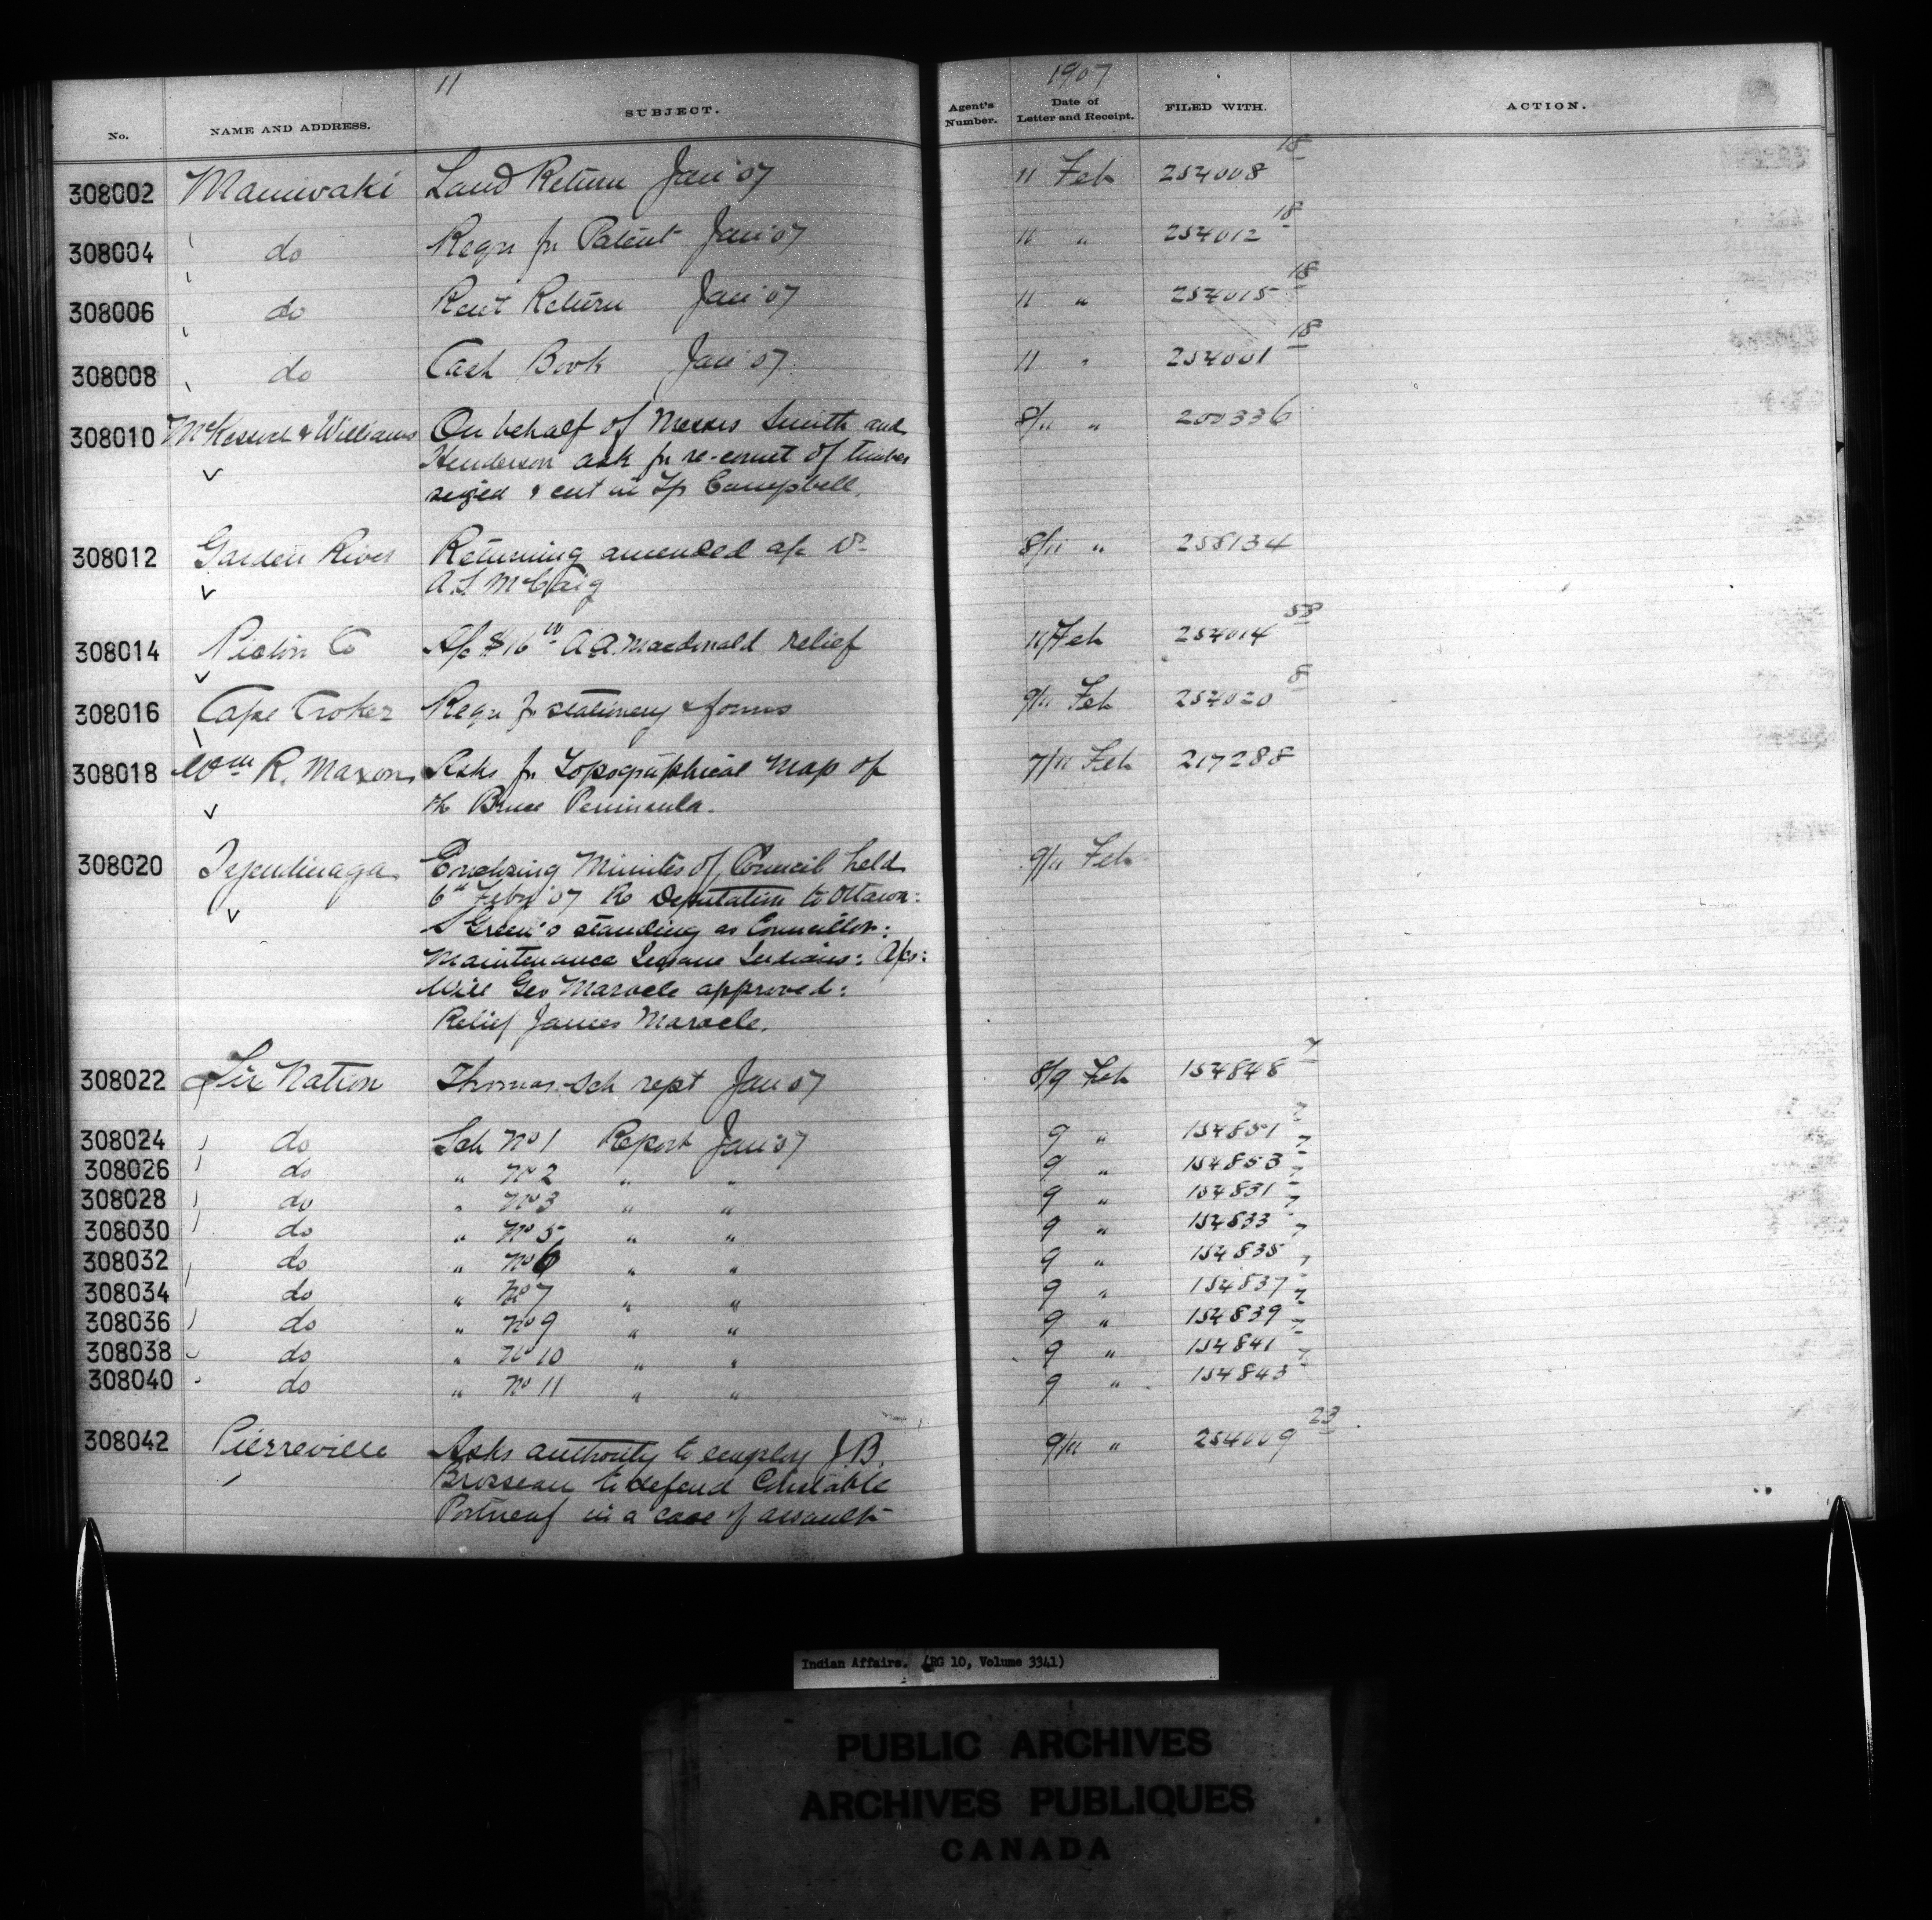 11
1907
No. NAME AND ADDRESS. SUBJECT. Agent's Number. Date of Letter and Receipt. FILED WITH. ACTION.
308002 Maniwaki Land Return Jan '07 11 Feb 254008 18
308004 do Reqn for Patent Jan '07 11 " 254012 18
308006 do Rent Return Jan '07 11 " 254015 18
308008 do Cash Book Jan '07 11 " 254001 18
308010 & Williams On behalf of Messrs Smith and 8/11 " 200336
Henderson ask for re-count of timber
seized & cut in Tp Campbell.
308012 Garden River Returning amended a/c 8/11 " 258134
A.S. McCaig
308014 Pictou Co A/c $16 A.A. Macdonald relief 11 Feb 254014 53
308016 Cape Croker Reqn for stationery & forms 9/11 Feb 254020 8
308018 Wm R. Maxon Asks for Topographical Map of 7/11 Feb 217288
th Bruce Peninsula.
308020 Tyendinaga Enclosing Minutes of Council held 9/11 Feb
6th Feby '07 Re Deputation to Ottawa:
S Green's standing as Councillor:
Maintenance Insane Indians: A/cs:
Will Geo Maracle approved:
Relief James Maracle.
308022 Six Nation Thomas Sch rept Jan 07 8/9 Feb 154848 7
308024 do Sch No 1 Report Jan '07 9 " 154851 7
308026 do " No 2 " " 9 " 154853 7
308028 do " No 3 " " 9 " 154831 7
308030 do " No 5 " " 9 " 154833 7
308032 do " No 6 " " 9 " 154835 7
308034 do " No 7 " " 9 " 154837 7
308036 do " No 9 " " 9 " 154839 7
308038 do " No 10 " " 9 " 154841 7
308040 do " No 11 " " 9 " 154843 7
308042 Pierreville Asks authority to employ J.B. 9/11 " 254009 23
Brosseau to defend Constable
Portneuf in a case of assault
Indian Affairs. (RG 10, Volume 3341)
PUBLIC ARCHIVES
ARCHIVES PUBLIQUES
CANADA